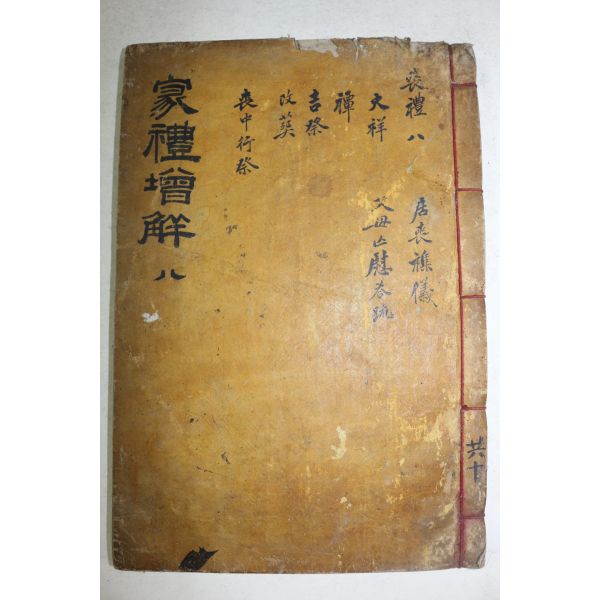 家禮增解 八
喪禮 八
大祥
禫
吉祭
改葬
喪中行祭
居喪雜儀
父母亡慰答疏
共十